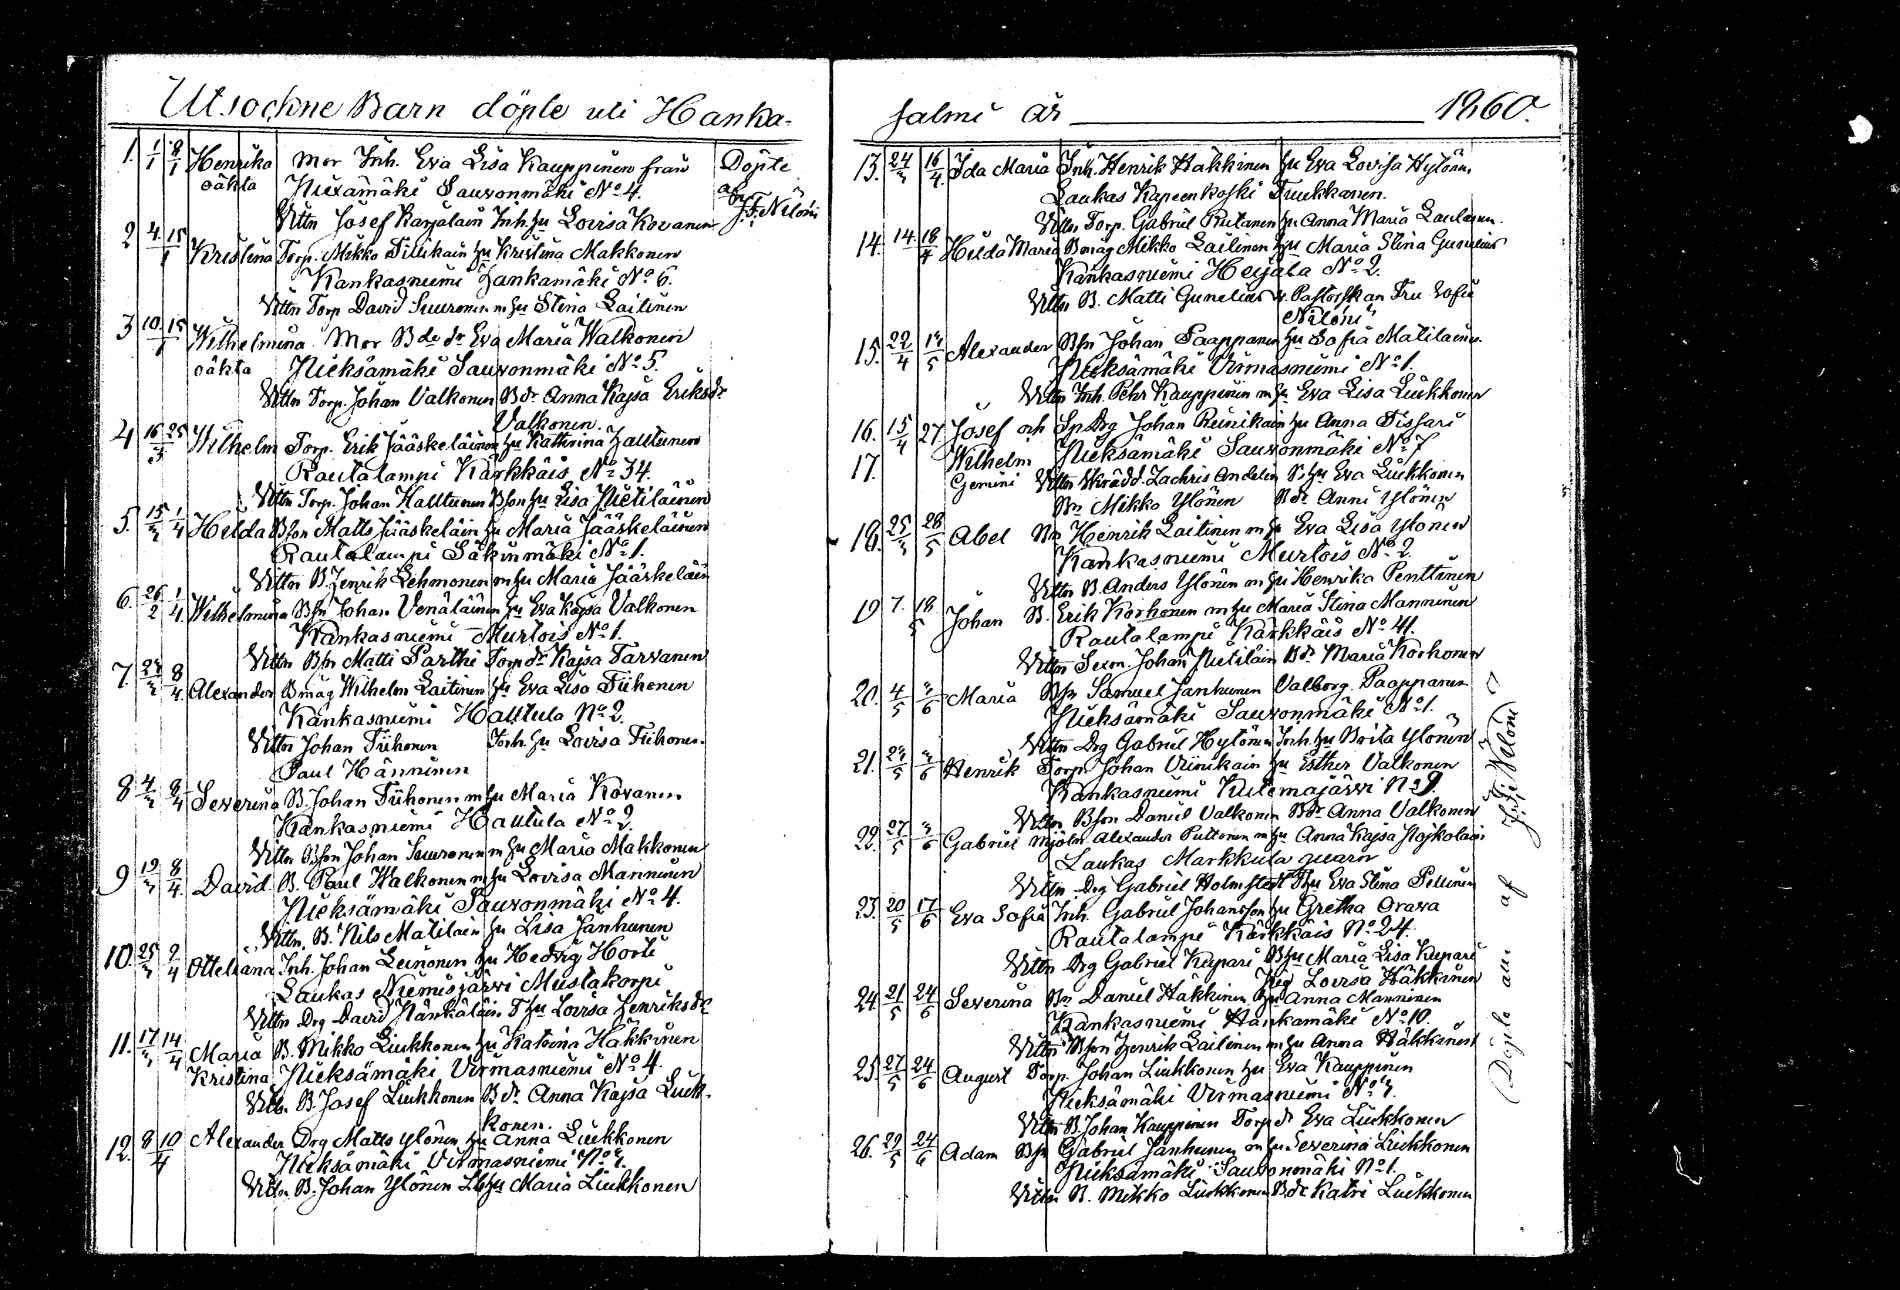 Utsockne Barn döpte uti Hanka-
1. 1/1 8/1 Henrika Mor Inh. Eva Lisa Kauppinen från Döpte
oäkta Niexämäki Sauvonmäki No 4. af
Vittn Josef Karjalain Inh. hu Lovisa Kovanen J. F. Nilöni
2 4 15/1 Kristina Torp. Mikko Tillikain hu Kristina Makkonen
Kankasniemi Hankamäki No 6.
Vittn Torp David Suuronen m hu Stina Laitinen
3 10 15/1 Wilhelmina Mor Bde dr Eva Maria Walkonen
oäkta Nieksämäki Sauvonmäki No 5.
Vittn Torp. Johan Valkonen Bdr Anna Kajsa Eriksdr
Valkonen.
4 16 25 Wilhelm Torp. Erik Jääskeläinen hu Kathrina Hallunen
Rautalampi Kärkkäis No 34.
Vittn Torp. Johan Halttunen Bson hu Lisa Pietiläinen
5. 15/3 1/4 Hilda Bson Matts Jääskeläin hu Maria Jääskeläinen
Rautalampi Säkinmäki No 1.
Vittn B. Henrik Lehmonen m hu Maria Jääskeläin
6. 26/2 1/4 Wilhelmina Bsn Johan Venäläinen hu Eva Kajsa Valkonen
Kankasniemi Murtois No 1.
Vittn Bsn Matti Parthi Torp dr Kajsa Tarvanen
7 8/4 Alexander Bmåg Wilhelm Laitinen hu Eva Lisa Tiihonen
Kankasniemi Halttula No 2.
Vittn Johan Tiihonen Inh. hu Lovisa Tiihonen.
Paul Hänninen
8 4/3 8/4 Severina B. Johan Tiihonen m hu Maria Kovanen
Kankasniemi Halttula No 2.
Vittn Bson Johan Suuronen m hu Maria Makkonen
9 19/3 8/4 David B. Paul Walkonen m hu Lovisa Manninen
Nieksämäki Sauvonmäki No 4.
Vittn. B. Nils Matilain hu Lisa Janhunen
10. 25/3 9/4 Otteliana Inh. Johan Leinonen hu Hedvig Horti
Laukas Niemisjärvi Mustakorpi
Vittn Drg David Hänkäläin T hu Lovisa Henriksdr
11. 17/3 14/4 Maria B. Mikko Liukkonen hu Katrina Häkkinen
Kristina Nieksämäki Virmasniemi No 4.
Vittn. B. Josef Liukkonen Bdr Anna Kajsa Liuk-
konen.
12. 8 10/4 Alexander Drg Matts Ylönen hu Anna Liukkonen
Nieksämäki Virmasniemi No
Vittn B. Johan Ylönen hu Maria Liukkonen
salmi År 1860.
13. 24/3 16/4. Ida Maria Inh. Henrik Häkkinen hu Eva Lovisa Hytönen
Laukas Kapeenkoski Tuukkanen.
Vittn Torp. Gabriel Rutanen hu Anna Maria Laulanen.
14. 14. 18/4 Hilda Maria Bmåg Mikko Laitinen hu Maria Stina Gunelius
Kankasniemi Heijala No 2.
Vittn B. Matti Gunelius v. Pastorskan Fru Sofie
Nilöni
15. 22/4 /5 Alexander Bsn Johan Paappanen hu Sofia Matilainen
Nieksämäki Virmasniemi No 1.
Vittn Inh. Pehr Kauppinen m hu Eva Lisa Liukkonen
16. 15/4 27. Josef och Sp Drg Johan Reinikain hu Anna Tissari
17. Wilhelm Nieksämäki Sauvonmäki No 7
Gemini Vittn Skrädd. Zachris Andelin S hu Eva Liukkonen
Bn Mikko Ylönen Bdr Anni Ylönen
18. 25/3 28/5 Abel Bn Henrik Laitinen m hu Eva Lisa Ylönen
Kankasniemi Murtois No 2.
Vittn B. Anders Ylönen m hu Henrika Penttinen
19 7. 18/5 Johan B. Erik Korhonen m hu Maria Stina Manninen
Rautalampi Kärkkäis No 41.
Vittn Sexm. Johan Pietiläin Bdr Maria Korhonen
20. 4/5 3/6 Maria Bsn Samuel Janhunen Valborg. Paappanen
Nieksämäki Sauvonmäki No 1.
Vittn Drg Gabriel Hytönen Inh. hu Brita Ylönen
21. /5 3/6 Henrik Torp. Johan Viinikain hu Esther Valkonen
Kankasniemi Kutemajärvi No 9.
Vittn Bson Daniel Valkonen Bdr Anna Valkonen
22. 27/5 3/6 Gabriel Mjöln. Alexander Puttonen m hu Anna Kajsa
Laukas Markkula quarn
Vittn Drg Gabriel Holmstedt T hu Eva Stina Pellinen
23. 20/5 17/6 Eva Sofia Inh. Gabriel Johansson hu Gretha Orava
Rautalampi Kärkkäis No 24.
Vittn Drg Gabriel Kupari B hu Maria Lisa Kupari
Pig Lovisa Häkkinen
24. 21/5 24/6 Severina Bn Daniel Häkkinen hu Anna Manninen
Kankasniemi Hankamäki No 10.
Vittn Bson Henrik Laitinen m hu Anna Häkkinen
25. 27/5 24/6 August Torp. Johan Liukkonen hu Eva Kauppinen
Nieksämäki Virmasniemi No
Vittn B. Johan Kauppinen Torp dr Eva Liukkonen
26. 29/5 24/6 Adam Bsn Gabriel Janhunen m hu Severina Liukkonen
Nieksämäki Sauvonmäki No 1.
Vittn B. Mikko Liukkonen Bdr Katri Liukkonen
(Döpte alla af J. F. Nilöni)